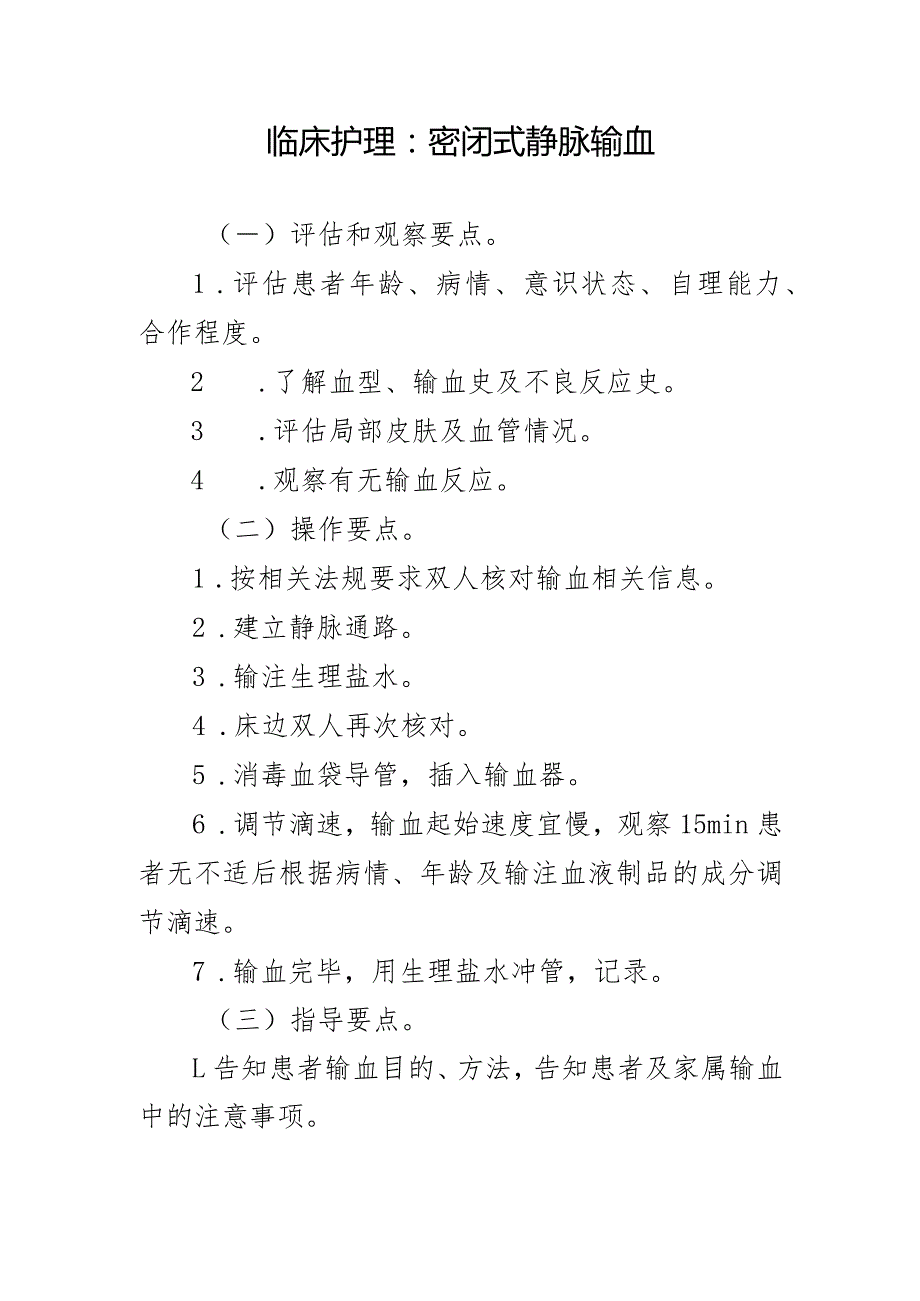 临床护理：密闭式静脉输血
（一）评估和观察要点。
1.评估患者年龄、病情、意识状态、自理能力、
合作程度。
2 .了解血型、输血史及不良反应史。
3 .评估局部皮肤及血管情况。
4 .观察有无输血反应。
（二）操作要点。
1.按相关法规要求双人核对输血相关信息。
2.建立静脉通路。
3.输注生理盐水。
4.床边双人再次核对。
5.消毒血袋导管，插入输血器。
6.调节滴速，输血起始速度宜慢，观察15min患
者无不适后根据病情、年龄及输注血液制品的成分调
节滴速。
7.输血完毕，用生理盐水冲管，记录。
（三）指导要点。
L告知患者输血目的、方法，告知患者及家属输血
中的注意事项。